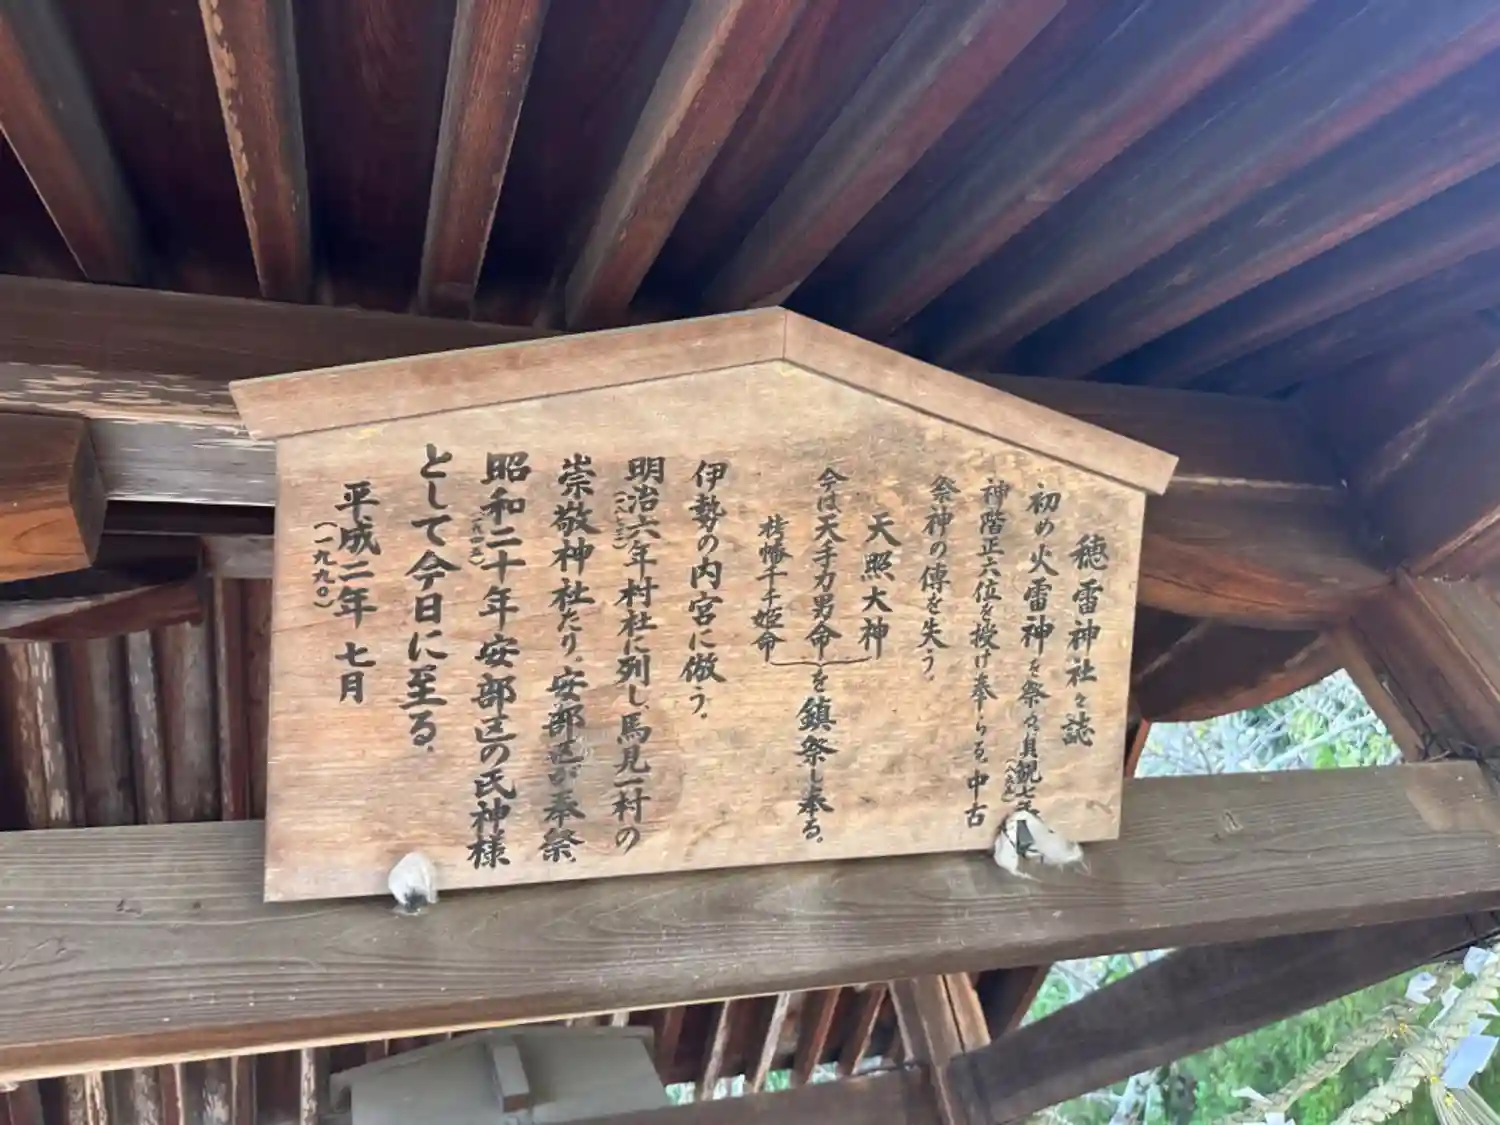 穂雷神社々誌
初め火雷神を祭る貞観七年
(八六五)
神階正六位を授け奉らる。中古
祭神の傳を失う。
天照大神
今は天手力男命を鎮祭し奉る。
栲幡千千姫命
伊勢の内宮に倣う。
明治六年村社に列し、馬見一村の
(一八七三)
崇敬神社たり。安部区が奉祭、
昭和二十年安部区の氏神様
(一九四五)
として今日に至る。
平成二年 七月
(一九九〇)